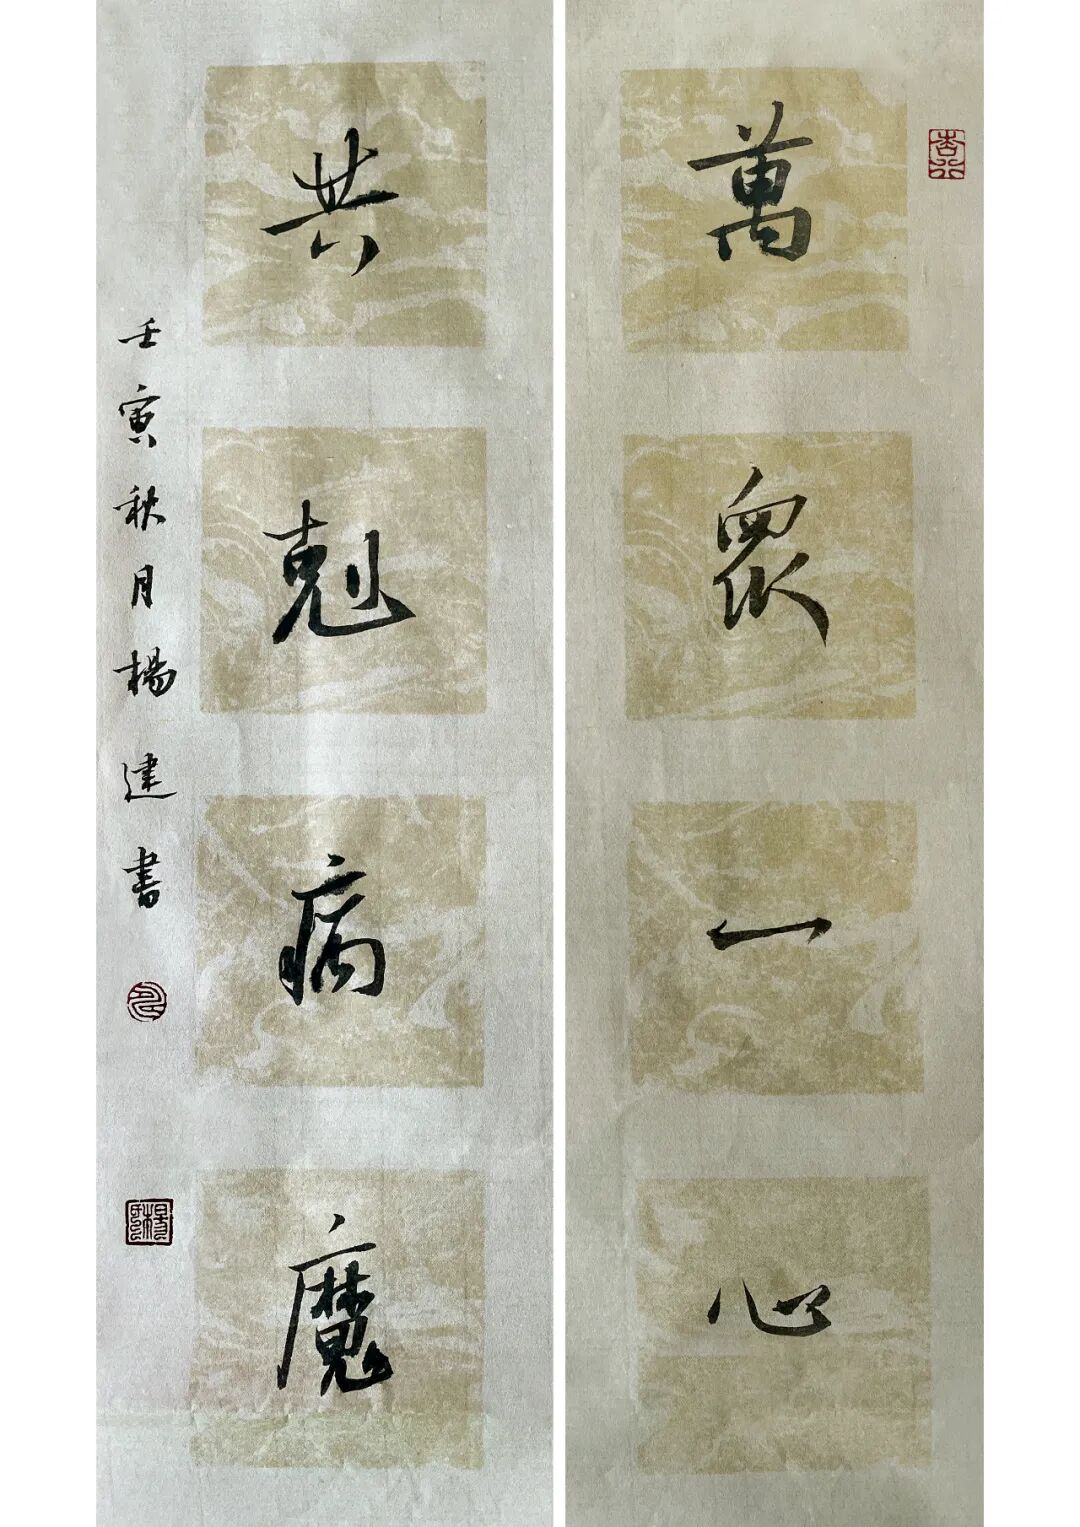 萬眾一心
共剋病魔
壬寅秋月楊建書